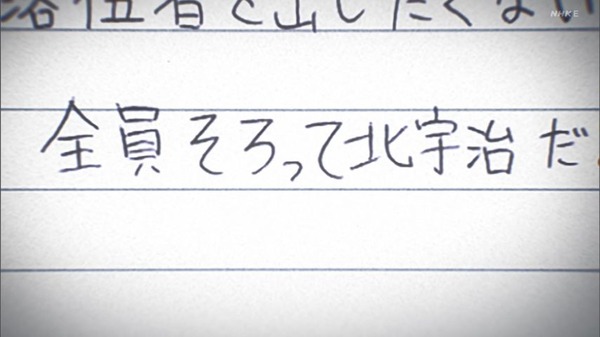 落伍者を出したくない
NHKE
全員そろって北宇治だ